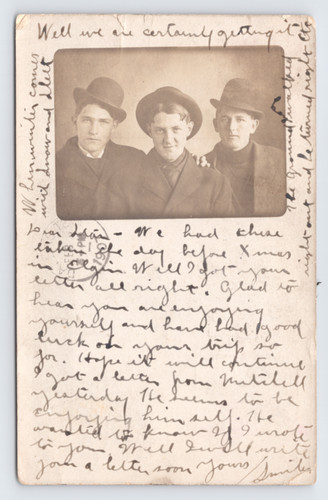 Well we are certainly getting it
When winter comes
with snow and sleet
The Ground walked
right out and he turned right
Dear Stan - We had these
taken the day before Xmas
in Elgin. Well I got your
letter all right. Glad to
hear you are enjoying
yourself and have had good
luck on your trip so
far. Hope it will continue
I got a letter from Mitchell
yesterday He seems to be
enjoying him self. He
wanted to know if I wrote
to you Well I will write
you a letter soon yours
Smiles